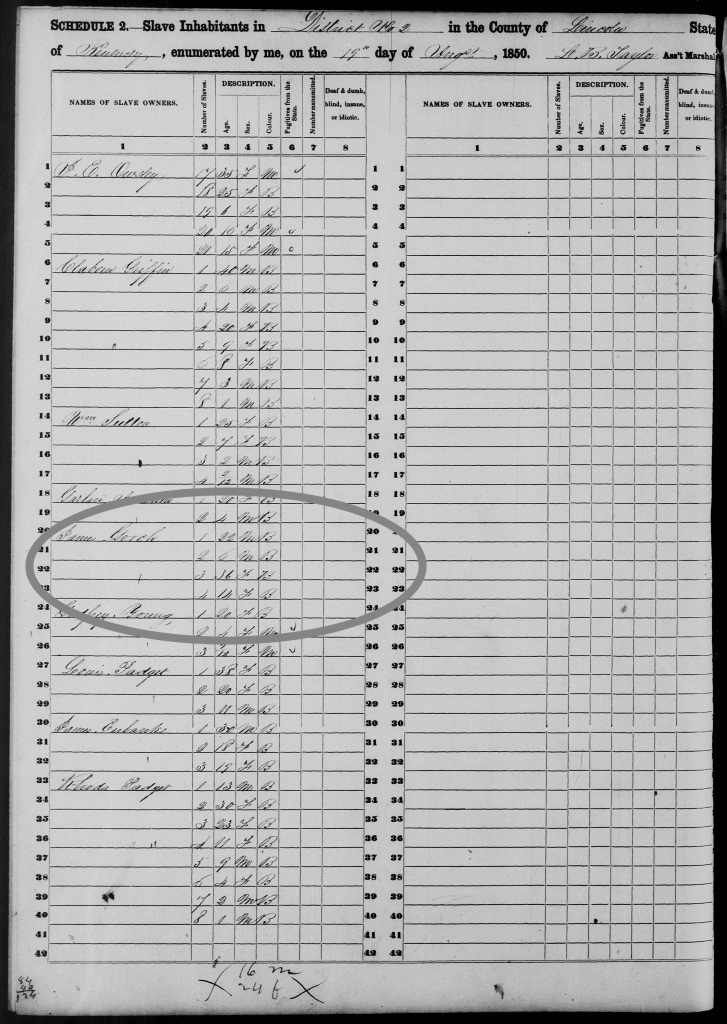 SCHEDULE 2.—Slave Inhabitants in District No 2 in the County of Lincoln State
of Kentucky, enumerated by me, on the 19th day of Augt, 1850. Taylor Ass't Marshal
NAMES OF SLAVE OWNERS. Number of Slaves. DESCRIPTION. Age. Sex. Colour. Fugitives from the State. Number manumitted. Deaf & dumb, blind, insane, or idiotic. NAMES OF SLAVE OWNERS. Number of Slaves. DESCRIPTION. Age. Sex. Colour. Fugitives from the State. Number manumitted. Deaf & dumb, blind, insane, or idiotic.
1 2 3 4 5 6 7 8 1 2 3 4 5 6 7 8
1 Owsley 17 35 F M 1 1
2 18 25 F B 2 2
3 19 6 F B 3 3
4 20 F M 4 4
5 21 15 F M 5 5
6 Claborn Griffin 1 40 M B 6 6
7 2 6 M B 7 7
8 3 4 M B 8 8
9 4 20 F B 9 9
10 " 5 9 F B 10 10
11 6 8 F B 11 11
12 7 3 M B 12 12
13 8 1 M B 13 13
14 Wm Sutton 1 23 F B 14 14
15 2 7 F B 15 15
16 3 2 M B 16 16
17 4 2/12 M B 17 17
18 1 20 F B 18 18
19 2 4 M B 19 19
20 James Gooch 1 22 M B 20 20
21 2 6 M B 21 21
22 3 36 F B 22 22
23 4 14 F B 23 23
24 Young 1 20 F B 24 24
25 2 4 F 25 25
26 3 F M 26 26
27 Padget 1 38 F B 27 27
28 2 20 F B 28 28
29 3 11 M B 29 29
30 James Eubanks 1 30 M B 30 30
31 2 18 F B 31 31
32 3 15 F B 32 32
33 Rhoda Padget 1 13 M B 33 33
34 2 30 F B 34 34
35 3 23 F B 35 35
36 " 4 11 F B 36 36
37 5 9 M B 37 37
38 6 4 F B 38 38
39 7 2 M B 39 39
40 8 1 M B 40 40
41 41 41
42 42 42
16 m
24 f